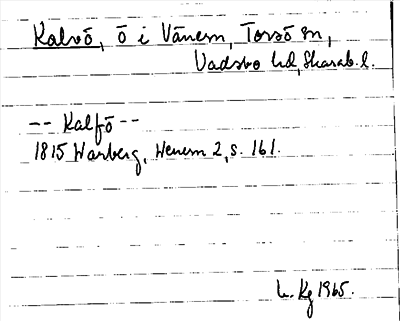 Kalvö, ö i Vänern, Torsö sn,
Vadsbo hd, Skarab. l.
-- Kalfö --
1815 Warberg, Wenern 2, s. 161.
L. Kg 1965.